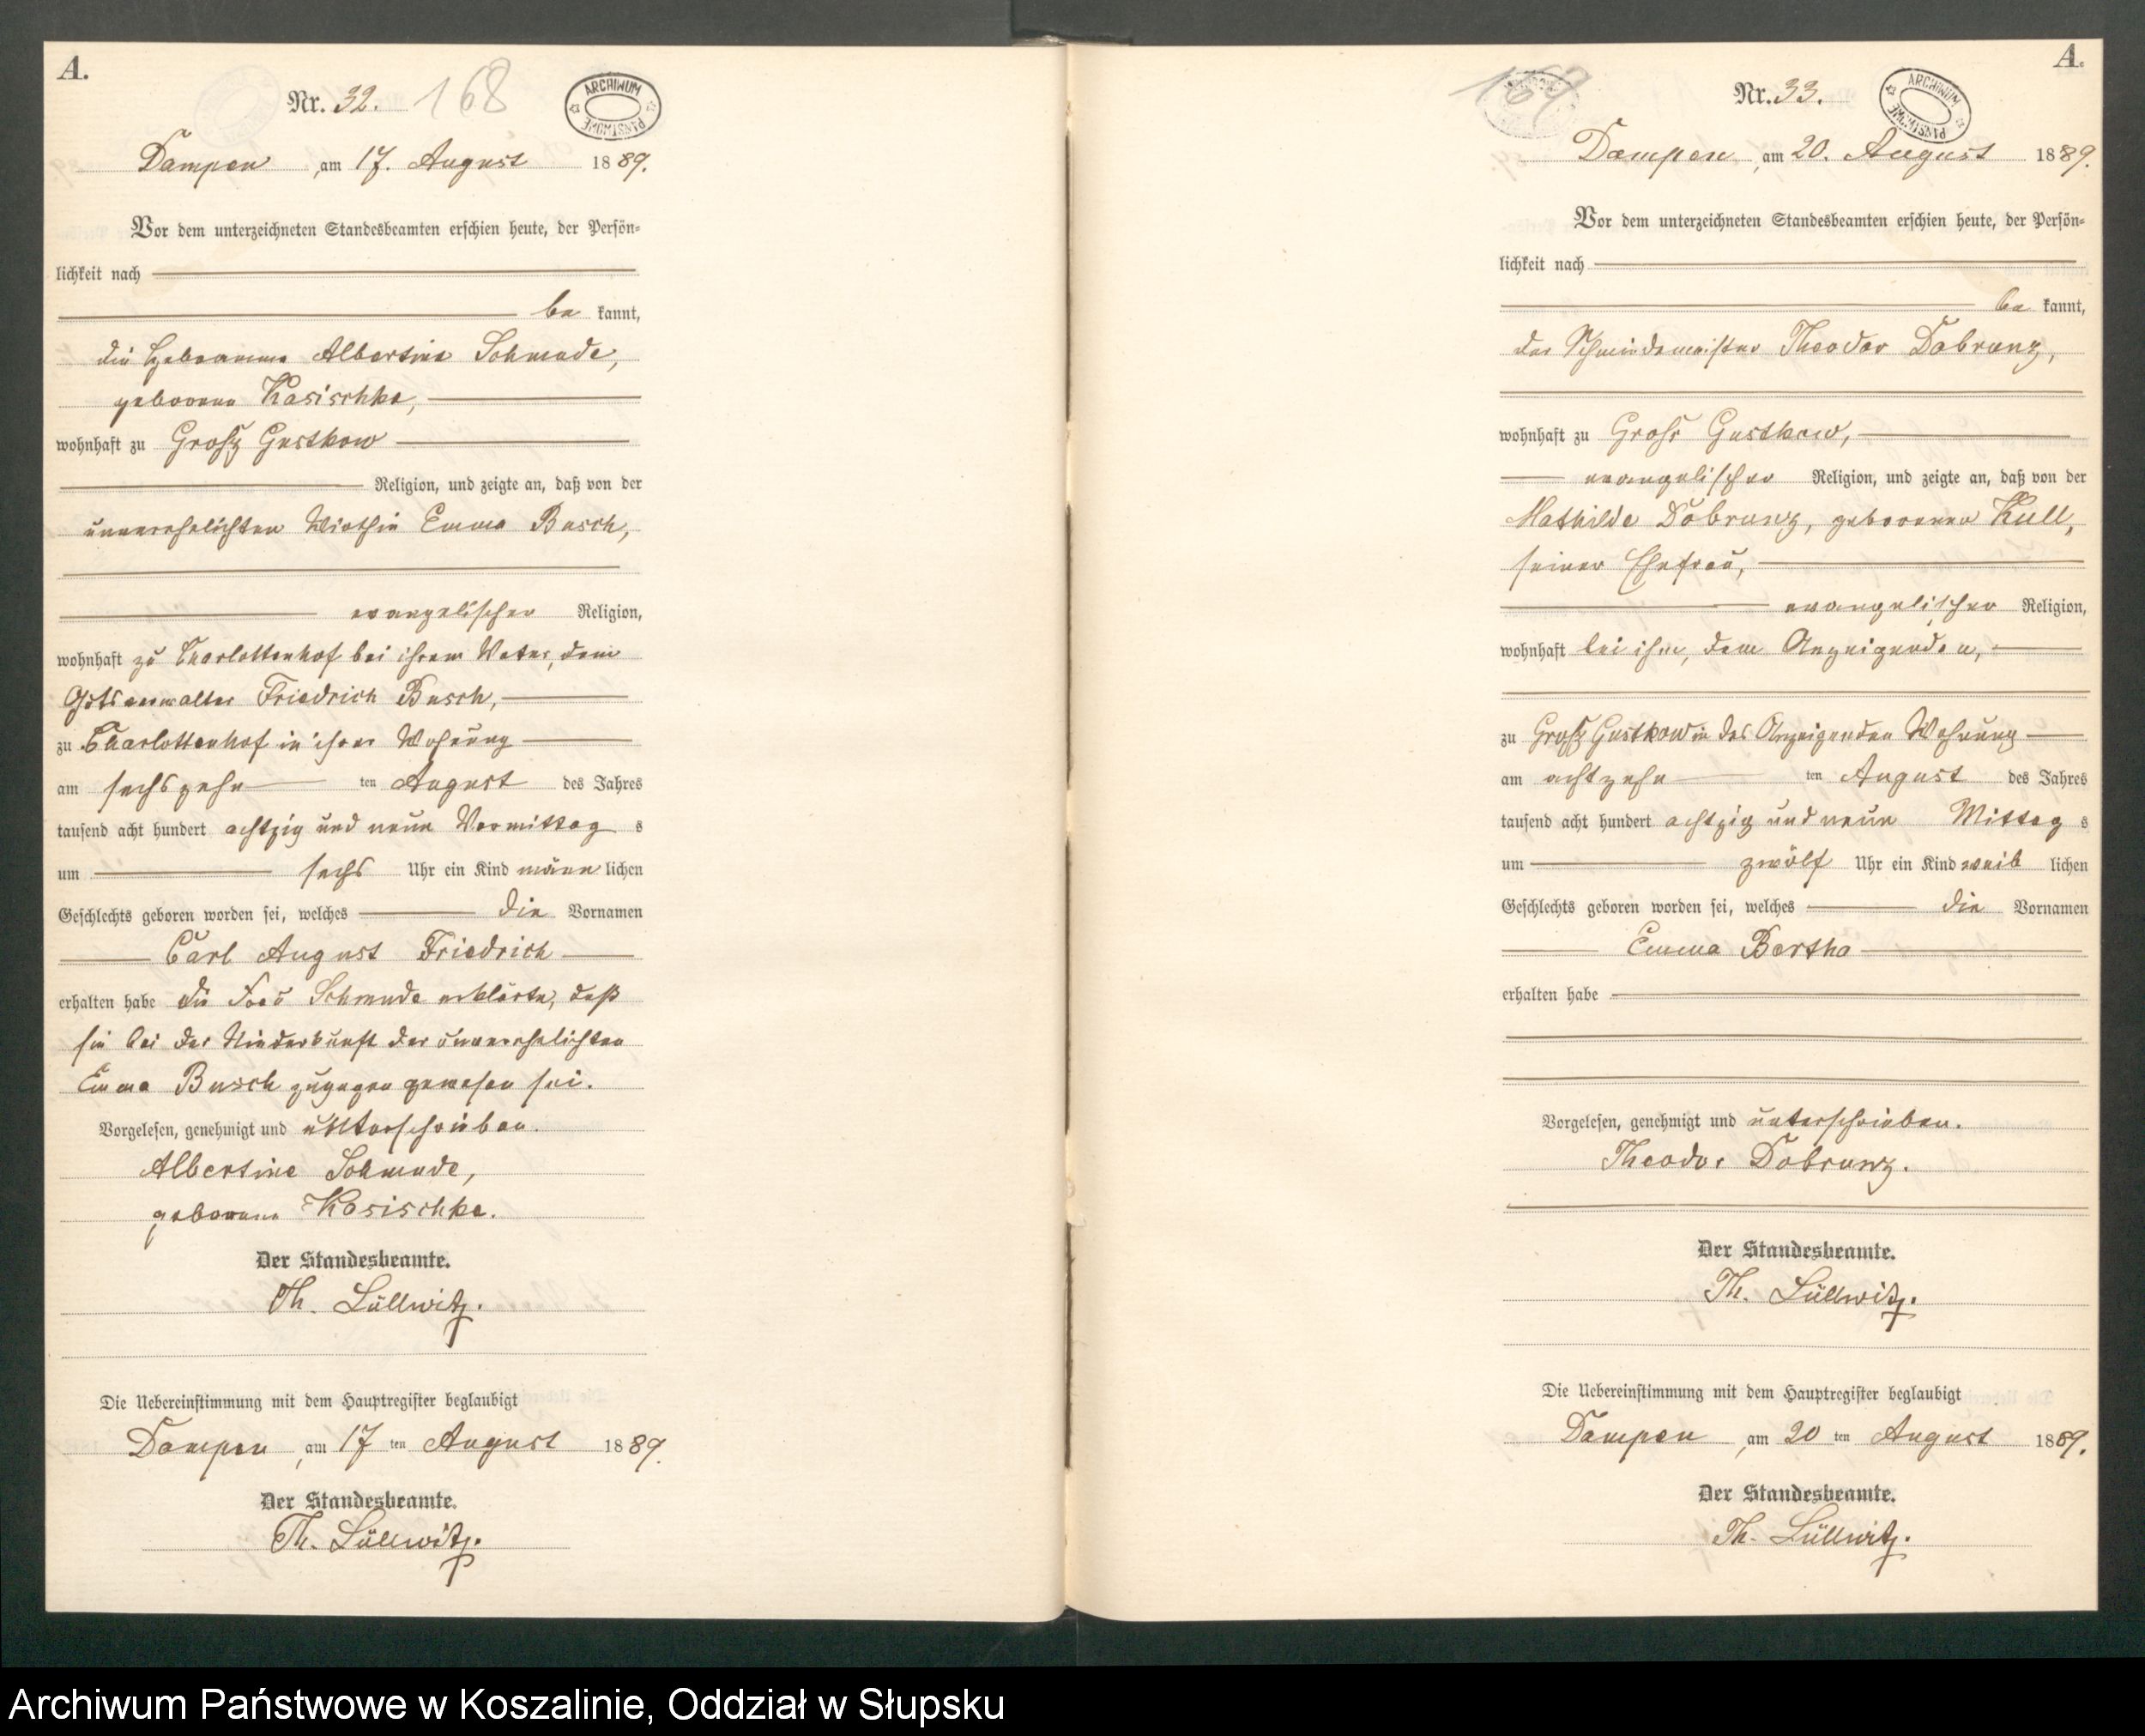 A.
Nr. 32. 168
ARCHIWUM PAŃSTWOWE
Dampen, am 17. August 1889.
Vor dem unterzeichneten Standesbeamten erschien heute, der Persön-
lichkeit nach
be kannt,
die Hebamme Albertine Schmude,
geborene Kasischke,
wohnhaft zu Groß Gustkow
Religion, und zeigte an, daß von der
unverehelichten Wirthin Emma Busch,
evangelischer Religion,
wohnhaft zu Charlottenhof bei ihrem Vater, dem
Gutsverwalter Friedrich Busch,
zu Charlottenhof in ihrer Wohnung
am sechszehn ten August des Jahres
tausend acht hundert achtzig und neun Vormittag s
um sechs Uhr ein Kind männ lichen
Geschlechts geboren worden sei, welches die Vornamen
Carl August Friedrich
erhalten habe die Frau Schmude erklärte, daß
sie bei der Niederkunft der unverehelichten
Emma Busch zugegen gewesen sei.
Vorgelesen, genehmigt und unterschrieben.
Albertine Schmude,
geborene Kasischke.
Der Standesbeamte.
Th. Lüllwitz.
Die Uebereinstimmung mit dem Hauptregister beglaubigt
Dampen, am 17 ten August 1889.
Der Standesbeamte.
Th. Lüllwitz.
A.
169 Nr. 33.
ARCHIWUM PAŃSTWOWE
Dampen, am 20. August 1889.
Vor dem unterzeichneten Standesbeamten erschien heute, der Persön-
lichkeit nach
be kannt,
der Schmiedemeister Theodor Dobrunz,
wohnhaft zu Gross Gustkow,
evangelischer Religion, und zeigte an, daß von der
Mathilde Dobrunz, geborenen Kull,
seiner Ehefrau,
evangelischer Religion,
wohnhaft bei ihm, dem Anzeigenden,
zu Groß Gustkow in des Anzeigenden Wohnung
am achtzehn ten August des Jahres
tausend acht hundert achtzig und neun Mittag s
um zwölf Uhr ein Kind weib lichen
Geschlechts geboren worden sei, welches die Vornamen
Emma Bertha
erhalten habe
Vorgelesen, genehmigt und unterschrieben.
Theodor Dobrunz.
Der Standesbeamte.
Th. Lüllwitz.
Die Uebereinstimmung mit dem Hauptregister beglaubigt
Dampen, am 20 ten August 1889.
Der Standesbeamte.
Th. Lüllwitz.
Archiwum Państwowe w Koszalinie, Oddział w Słupsku